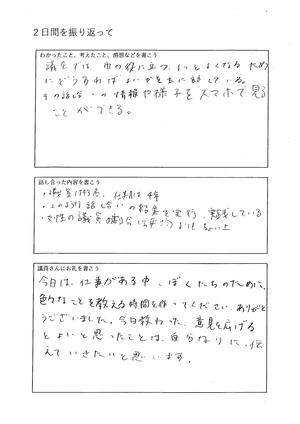 2日間を振り返って
わかったこと、考えたこと、感想などを書こう
議会では市の役に立つ、もっとよくなるため
にどうすればよいかを主に話している。
その話し合いの情報や様子をスマホで見る
ことができる。
話し合った内容を書こう
任期は4年
・このような話し合いの結果を実行、実現している
・女性の議員の割合は平均よりちょい上
議員さんにお礼を書こう
今日は、仕事がある中、ぼくたちのために、
色々なことを教える時間を作ってくださり、ありがと
うございました。今日教わった、意見を広げる
とよいと思ったことは、自分なりに、伝
えていきたいと思います。